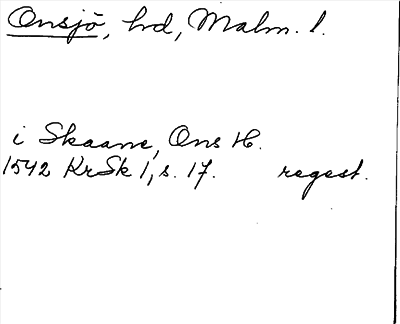 Onsjö, hd, Malm. l.
i Skaane, Ons H.
1542 KrSk 1, s. 17. regest.